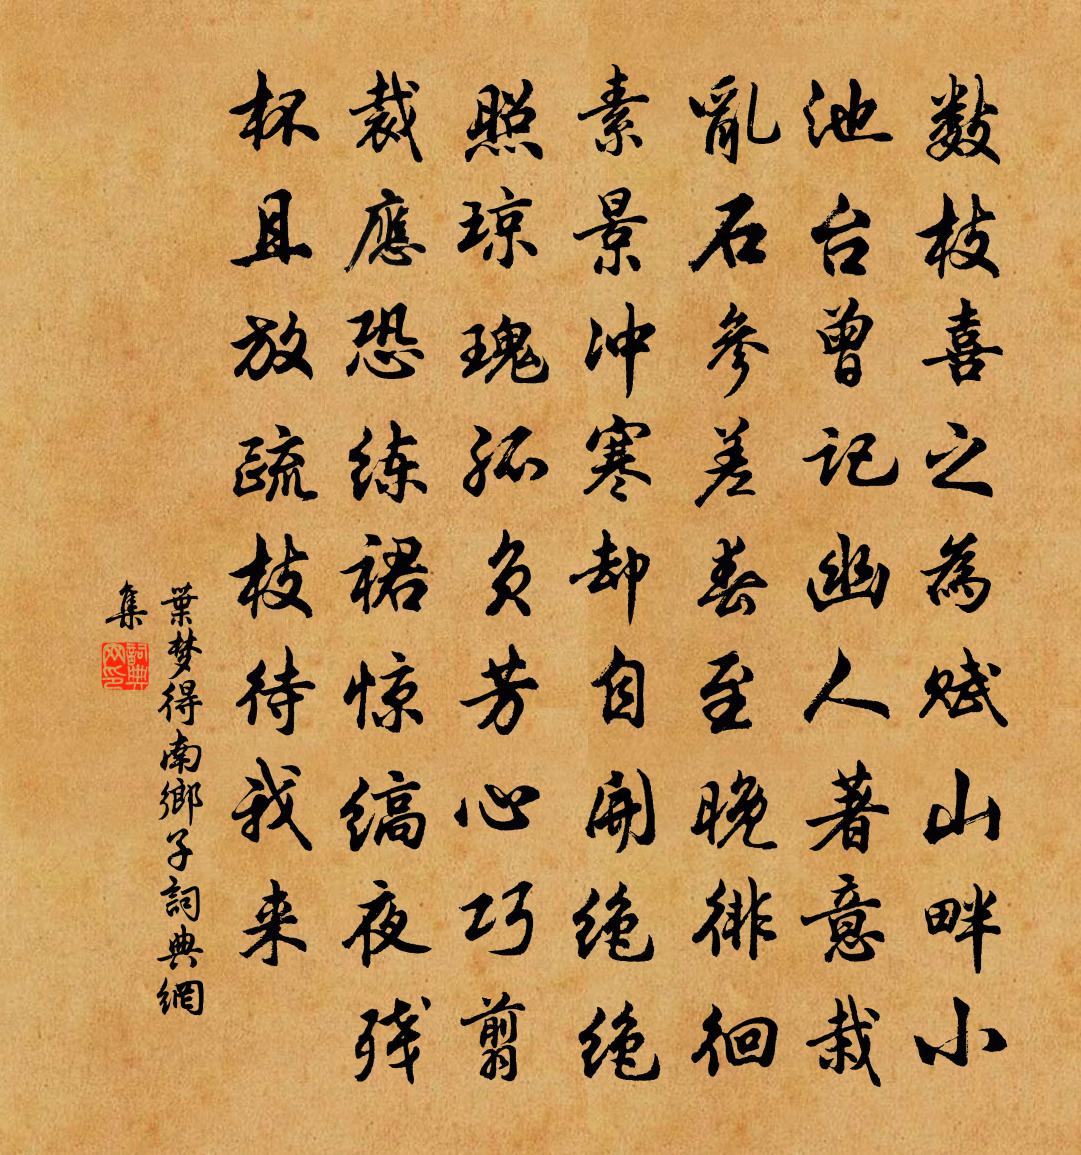 数枝喜之為赋山畔小
池台曾记幽人著意栽
亂石参差春至晚徘徊
素景冲寒却自開绝绝
照琼瑰孤负芳心巧翦
裁應恐练裙惊缟夜残
杯且放疏枝待我来
葉梦得南鄉子詞典網
集
詞典网印